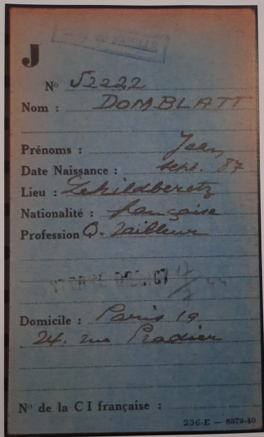 J
N° 52222
Nom : DOMBLATT
Prénoms : Jean
Date Naissance : sept. 87
Lieu : Schildberetz
Nationalité : française
Profession O. Tailleur
Domicile : Paris 19
24. rue Pradier
N° de la C I française :
236-E — 8379-40